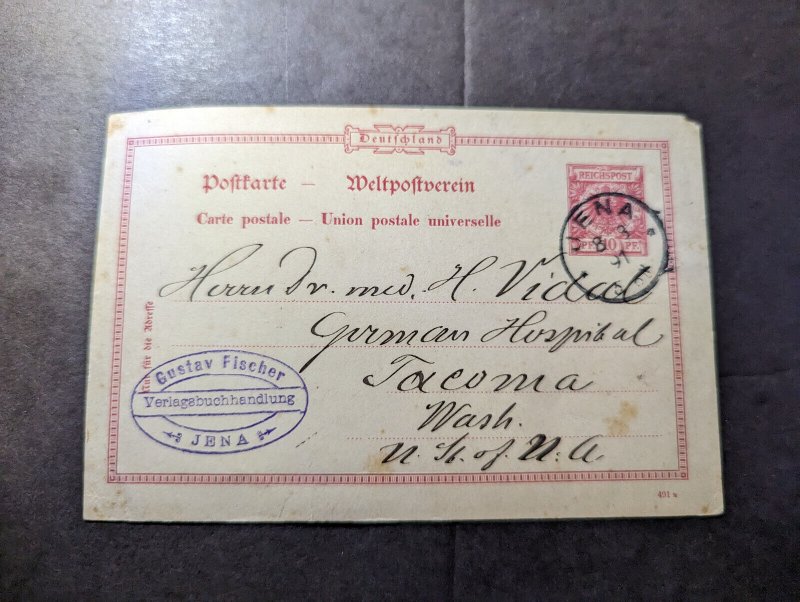 Deutschland
Postkarte — Weltpostverein
Carte postale — Union postale universelle
REICHSPOST
PF. 10 PF.
JENA
8 3
91
Herrn Dr. med. H. Vidal
German Hospital
Tacoma
Wash.
U. St. of N. A
Nur für die Adresse
Gustav Fischer
Verlagsbuchhandlung
JENA
491